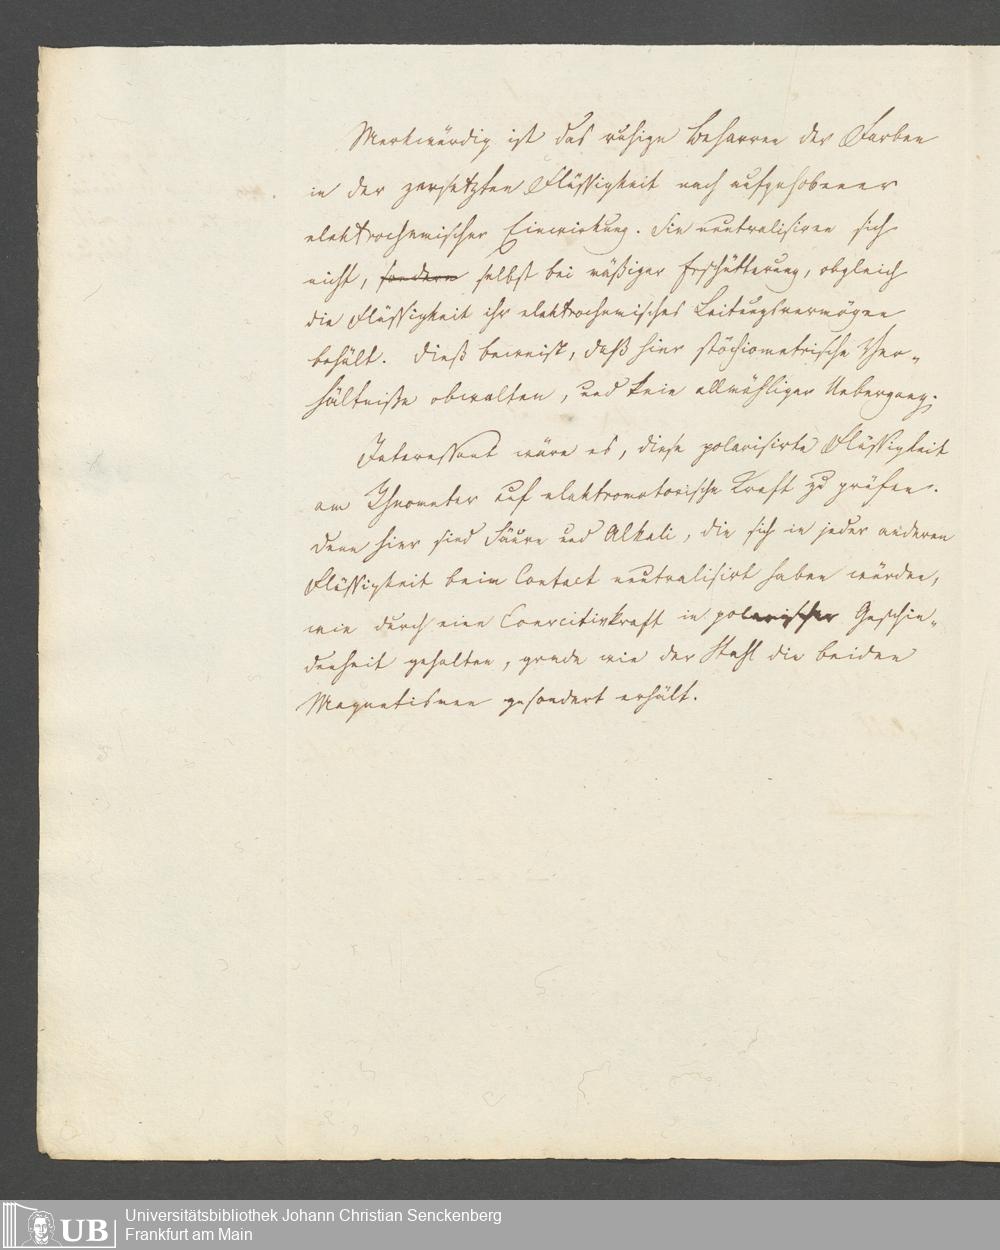 Merkwürdig ist das ruhige Beharren der Farben
in der zersetzten Flüssigkeit nach aufgehobener
elektrochemischer Einwirkung. Sie neutralisiren sich
nicht, sondern selbst bei mäßiger Erschütterung, obgleich
die Flüssigkeit ihr elektrochemisches Leitungsvermögen
behält. Dieß beweist, daß hier stöchiometrische Ver-
hältniße obwalten, und kein allmähliger Uebergang.
Interessant wäre es, diese polarisirte Flüssigkeit
am auf elektromotorische Kraft zu prüfen.
Denn hier sind Säure und Alkali, die sich in jeder anderen
Flüssigkeit beim Contact neutralisirt haben würden,
wie durch eine Coercitivkraft in polarischer Geschie-
denheit gehalten, grade wie der Stahl die beiden
Magnetismen gesondert erhält.
UB
Universitätsbibliothek Johann Christian Senckenberg
Frankfurt am Main